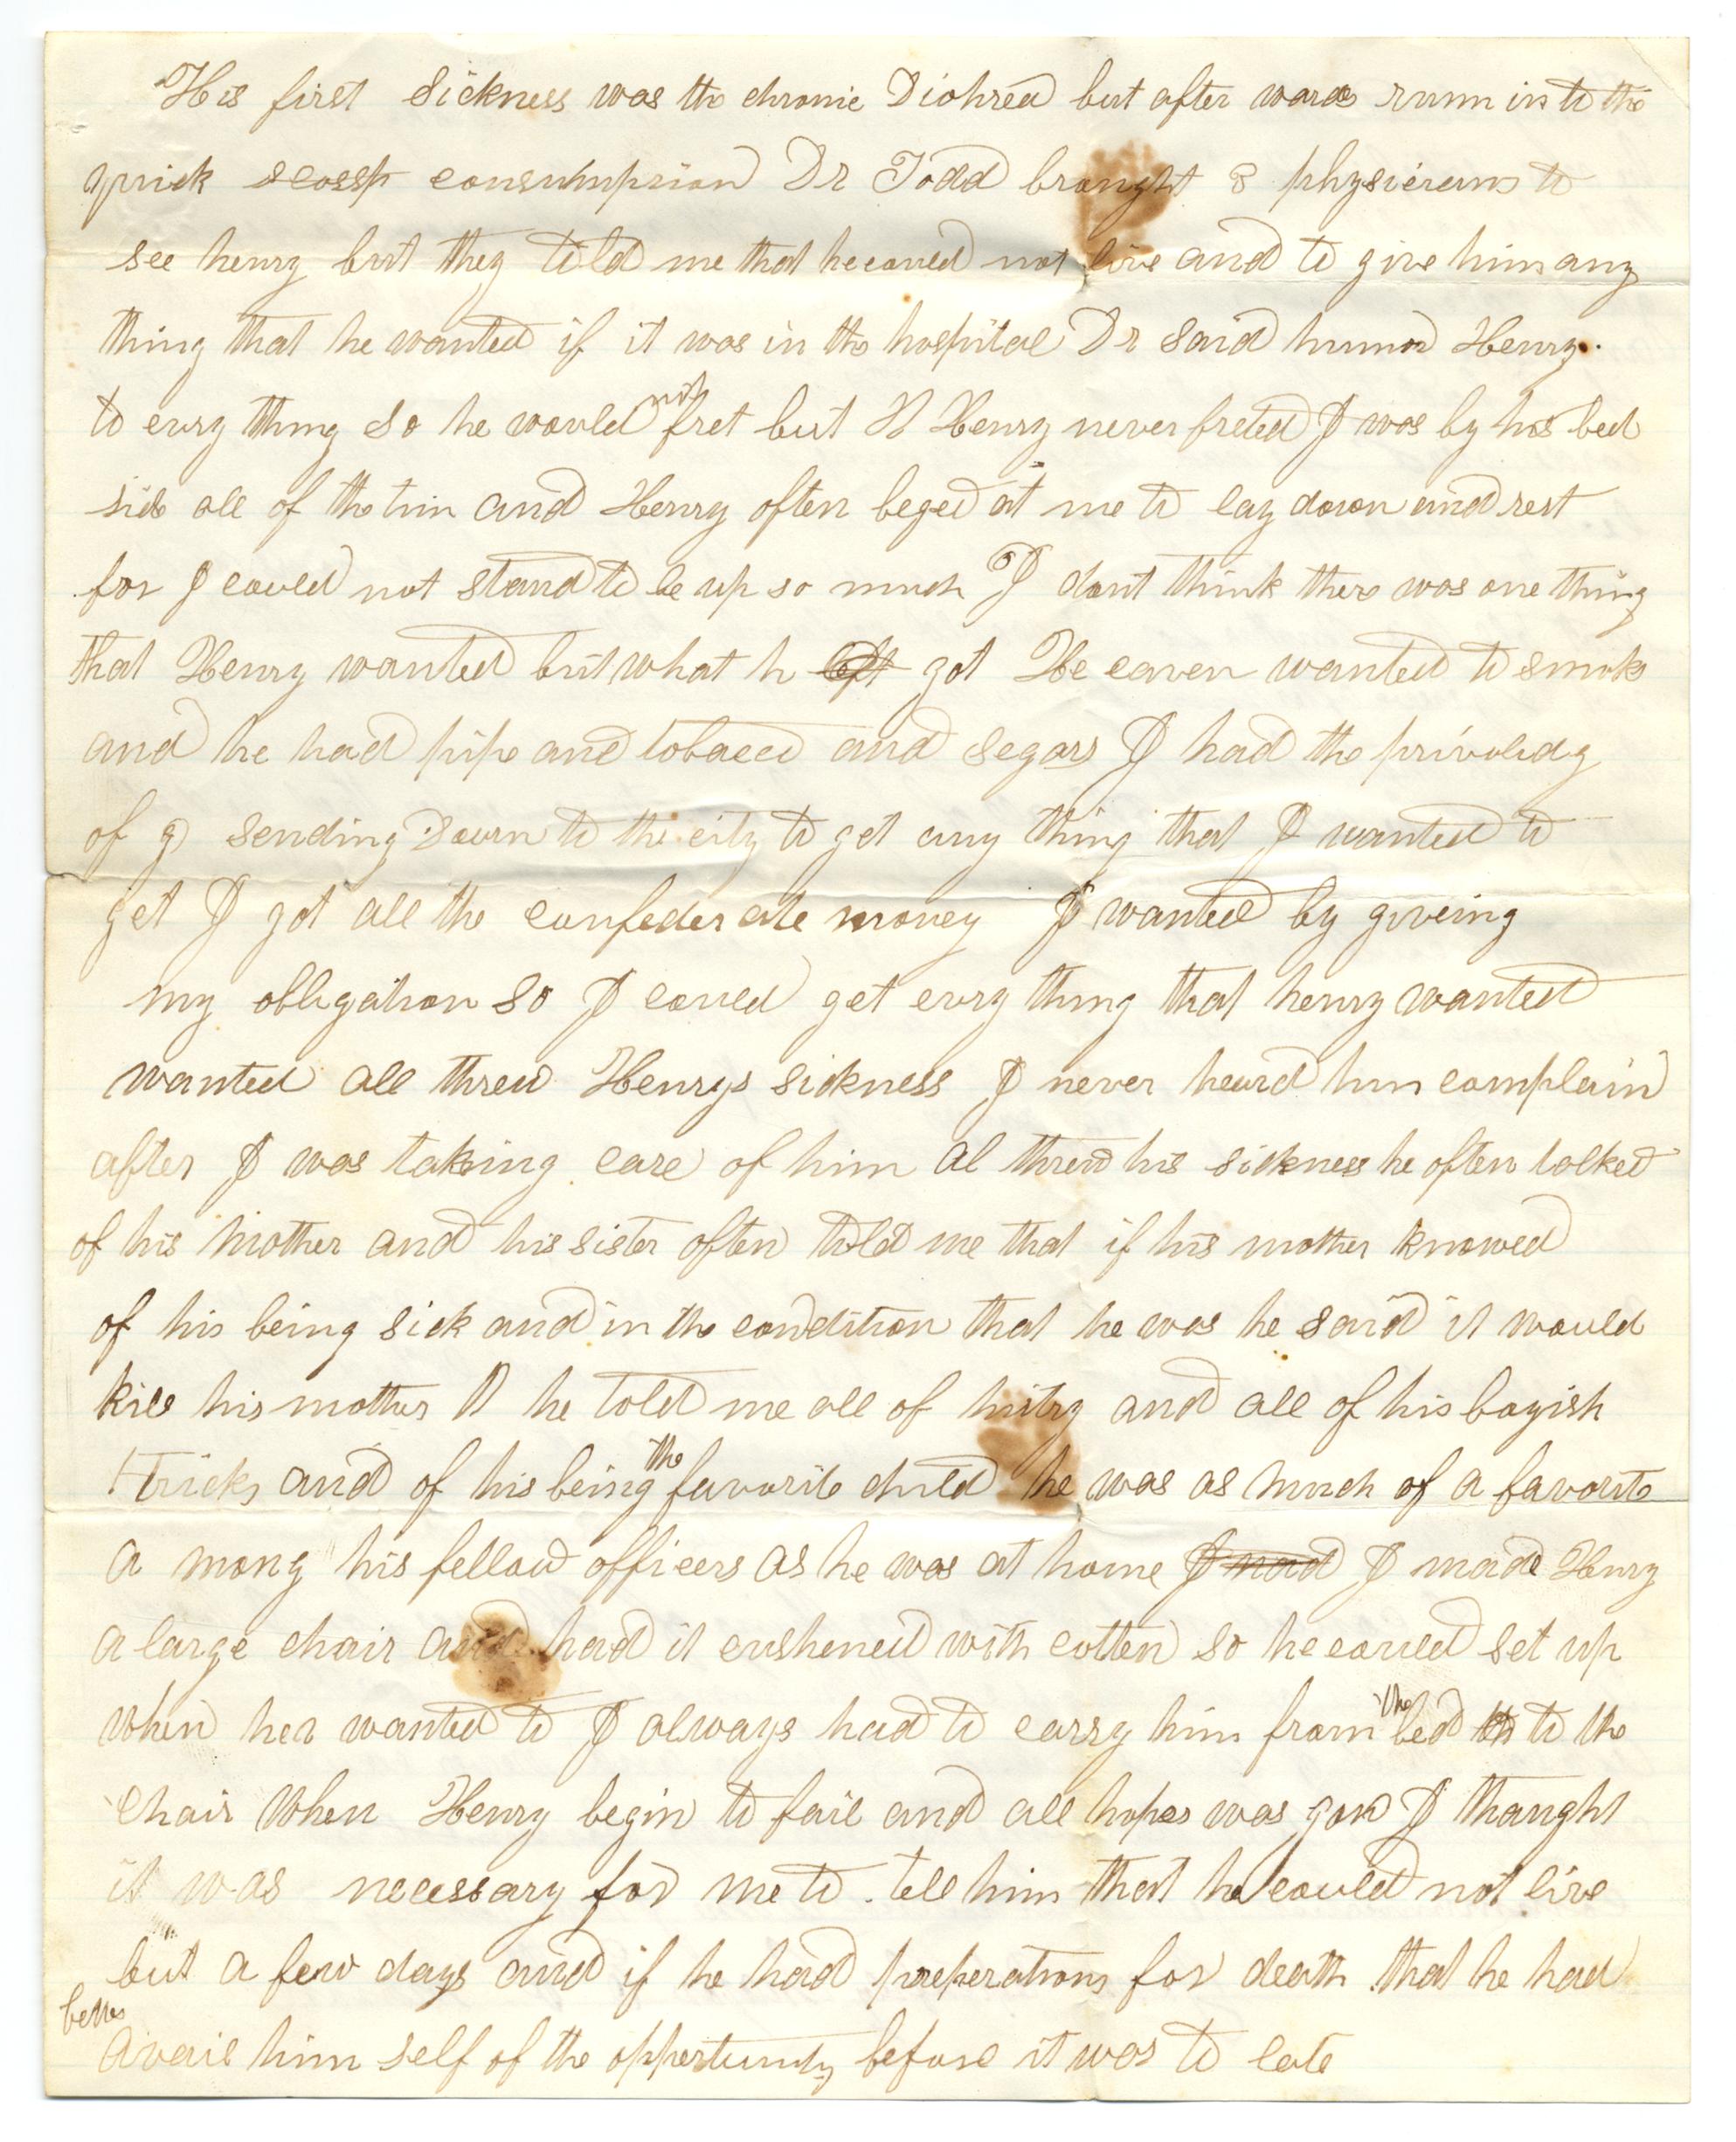 His first Sickness was the chronic Diohrea but after wards runn in to the
quick scossp consumpsion Dr Todd brought 8 physicians to
see henry but they told me that he could not live and to give him any
thing that he wanted if it was in the hospital Dr Said humor Henry.
to evry thing So he would not fret but H Henry never freted I was by his bed
side all of the tim and Henry often beged at me to lay down and rest
for I could not stand to be up so much I dont think there was one thing
that Henry wanted but what h got He eaven wanted to smoke
and he had pipe and tobacco and Segars I had the privoledg
of g sending Down to the city to get any thing that I wanted to
get I got all the confederate money I wanted by giveing
my obligation So I could get evry thing that henry wanted
wanted all threw Henrys Sickness I never heard him complain
after I was taking care of him al threw his sickness he often talked
of his mother and his sister often told me that if his mother knowed
of his being Sick and in the condition that he was he said it would
kill his mother he told me all of histry and all of his boyish
tricks and of his being the favorite child he was as much of a favorite
a mong his fellow officers as he was at home I mad I made Henry
a large chair and had it cushened with cotten so he could set up
when her wanted to I always had to carry him from the bed to the
chair When Henry begin to fail and all hopes was gon I thought
it was necessary for me to tell him that he could not live
but a few days and if he had preperations for death that he had
better
avail him self of the oppertunity before it was to late